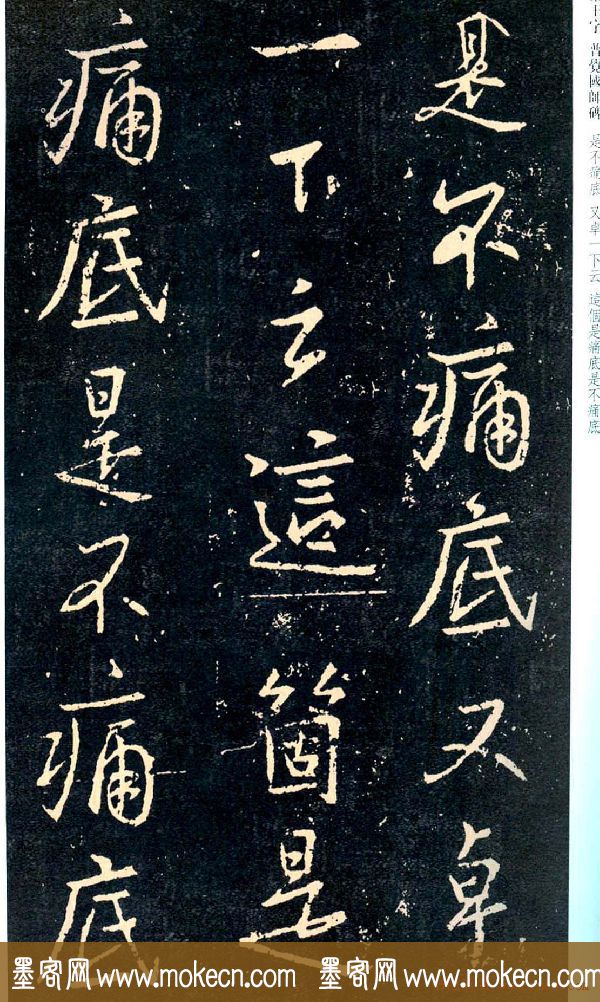 王字 普覺國師碑 是不痛底 又卓一下云 這個是痛底是不痛底
是不痛底又卓
一下云這箇是
痛底是不痛底
墨客网 www.mokecn.com 墨客网 www.mokecn.com